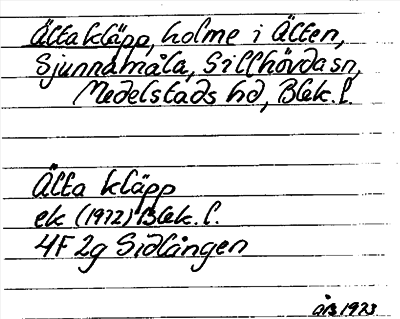 Älta kläpp, holme i Älten,
Sjunnamåla, Sillhövda sn,
Medelstads hd, Blek. l.
Älta kläpp
ek (1972) Blek. l.
4F 2g Sidlången
års 1973